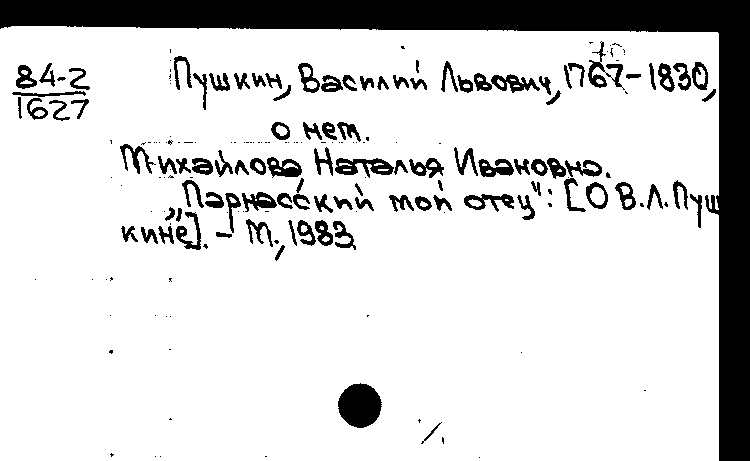 70
84-2 Пушкин, Василий Львович, 1767-1830,
1627
о нем.
Михайлова Наталья Ивановна.
„Парнасский мой отец": [О В.Л. Пуш
кине]. - М., 1983.